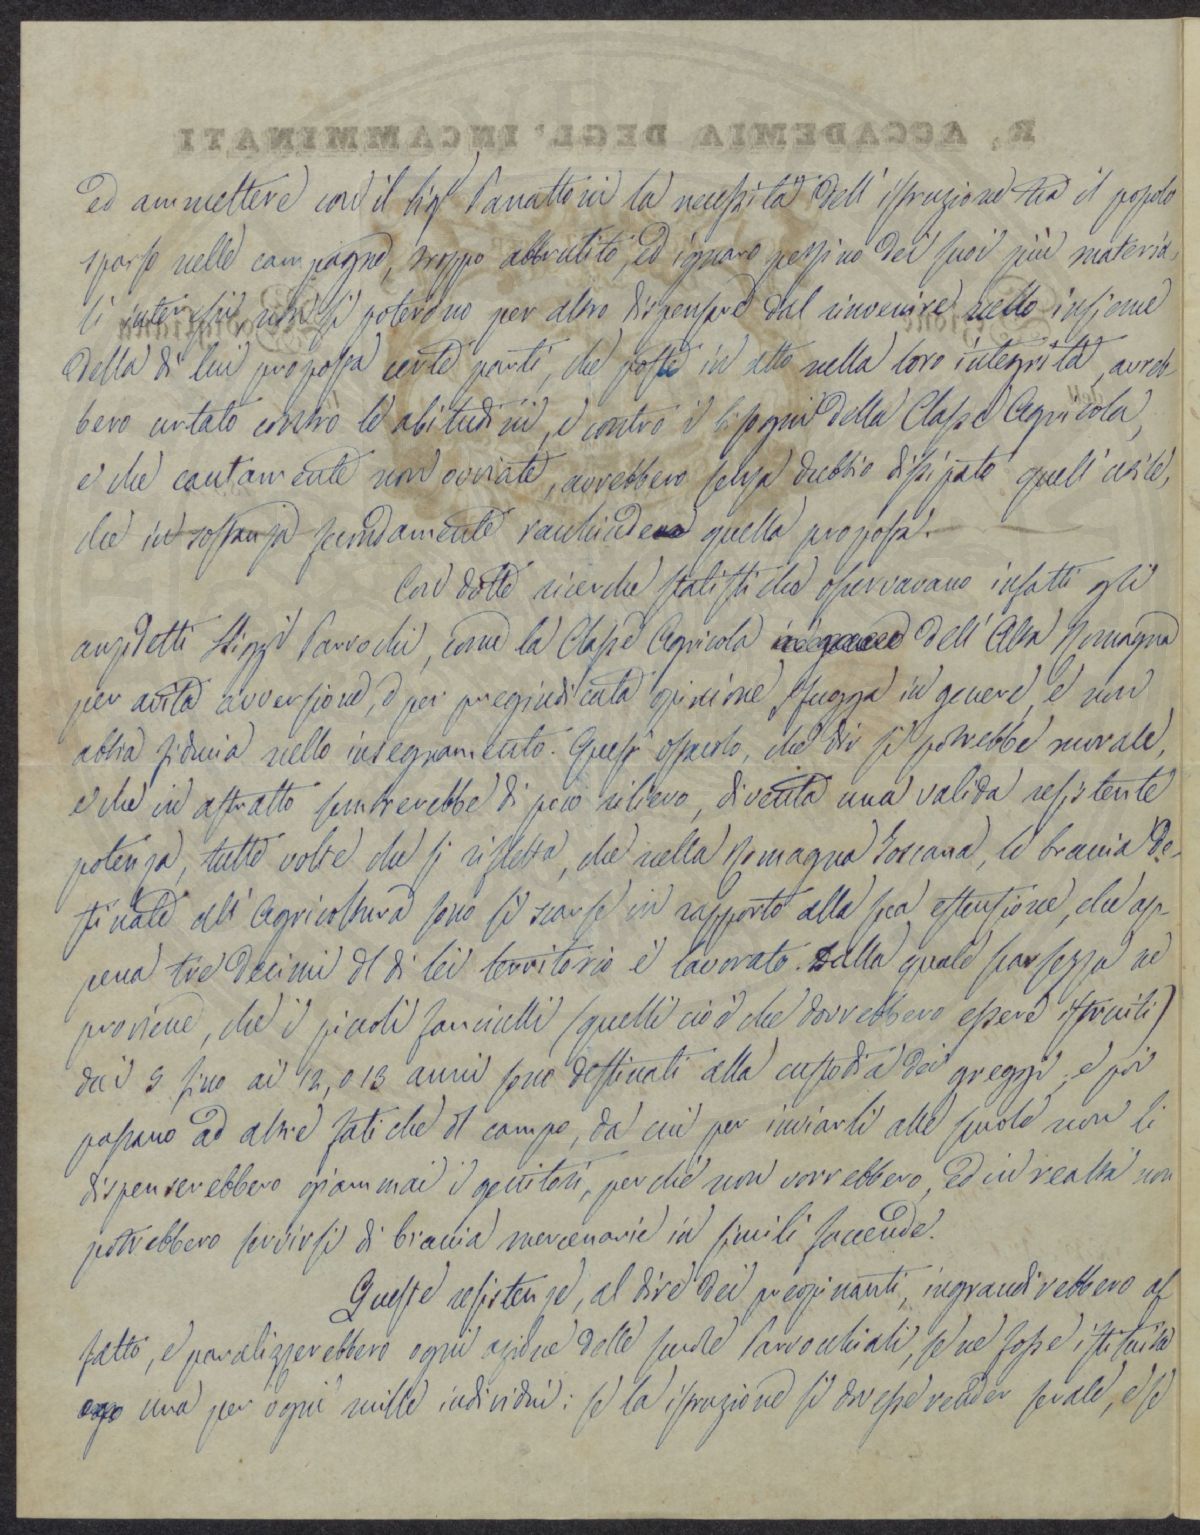 R. ACCADEMIA DEGL' INCAMMINATI
ed ammettere con il Sigr Panattoni la necessità dell' istruzione tra il popolo
sparso nelle campagne, troppo abbrutito, ed ignaro persino dei suoi più materia-
li interessi non si poterono per altro dispensare dal rinvenire nello insieme
della di lui proposta certe parti, che poste in atto nella loro integrità, avreb-
bero urtato contro le abitudini, e contro i bisogni della Classe Agricola,
e che cautamente non ovviate, avrebbero senza dubbio dissipato quell' utile,
che in sostanza fecondamente racchiudeva quella proposta.
Con dotte ricerche statistiche osservavano infatti gli
anzidetti Parrochi, come la Classe Agricola dell' Alta Romagna
per avita avversione, o per pregiudicata opinione, sfugga in genere, e non
abbia fiducia nello insegnamento. Questo ostacolo, che dir si potrebbe morale,
e che in astratto sembrerebbe di poco rilievo, diventa una valida resistente
potenza, tutte volte che si rifletta, che nella Romagna Toscana, le braccia de-
stinate all' Agricoltura sono sì scarse in rapporto alla sua estensione, che ap-
pena tre decimi del di lei territorio è lavorato. Dalla quale scarsezza ne
proviene, che i piccoli fanciulli (quelli cioè che dovrebbero essere istruiti)
dai 5 fino ai 12, o 13 anni sono destinati alla custodia dei greggi, e poi
passano ad altre fatiche del campo, da cui per inviarli alle scuole non li
dispenserebbero giammai i genitori, perchè non vorrebbero, ed in realtà non
potrebbero servirsi di braccia mercenarie in simili faccende.
Queste resistenze, al dire dei preopinanti, ingrandirebbero af
fatto, e paralizzerebbero ogni azione delle scuole Parrocchiali, se ne fosse istituita
una per ogni mille individui: se la istruzione si dovesse render serale, e se